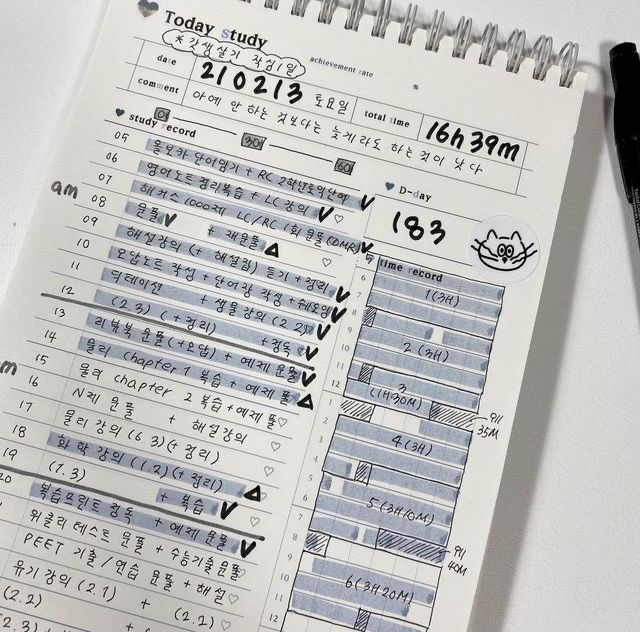 Today study
* 갓생살기 작심1일
achievement rate %
date 210213 토요일 total time 16h 39m
comment 아예 안 하는 것보다는 늦게라도 하는 것이 낫다
study record
0 30 60
D-day
183
am
05 올보카 단어암기 + RC 2학년토익단어
06 영어노트 정리복습 + LC 강의
07 해커스 1000제 LC/RC 1회 문풀(OMR)
08 문풀 + 채문풀
09 해설강의 (+ 해설집) 듣기 + 정리
10 오답노트 작성 + 단어장 작성 + 쉐도잉
11 딕테이션 + 생물강의 (2.2)
12 (2.3) (+정리) + 정독
13 리뷰북 문풀(+오답) + 예제 문풀
14 물리 chapter 1 복습 + 예제 풀
15 물리 chapter 2 복습 + 예제 풀
16 N제 문풀 + 해설강의
17 물리강의 (6.3)(+정리)
18 화학강의 (1.2)(+정리)
19 (1.3) + 복습
20 복습프린트 정독 + 예제 문풀
위클리테스트 문풀 + 수능기출문풀
PEET 기출/연습 문풀 + 해설
유기강의 (2.1) +
(2.2) + (2.2)
(2.3) +
time record
5
6 1(3H)
7
8
9 2(3H)
10
11 3
12 (1H30M)
1 낮잠 35M
2
3 4(3H)
4
5 5(3H10M)
6
7
8
9 낮잠 40M
10 6(3H20M)
11
12